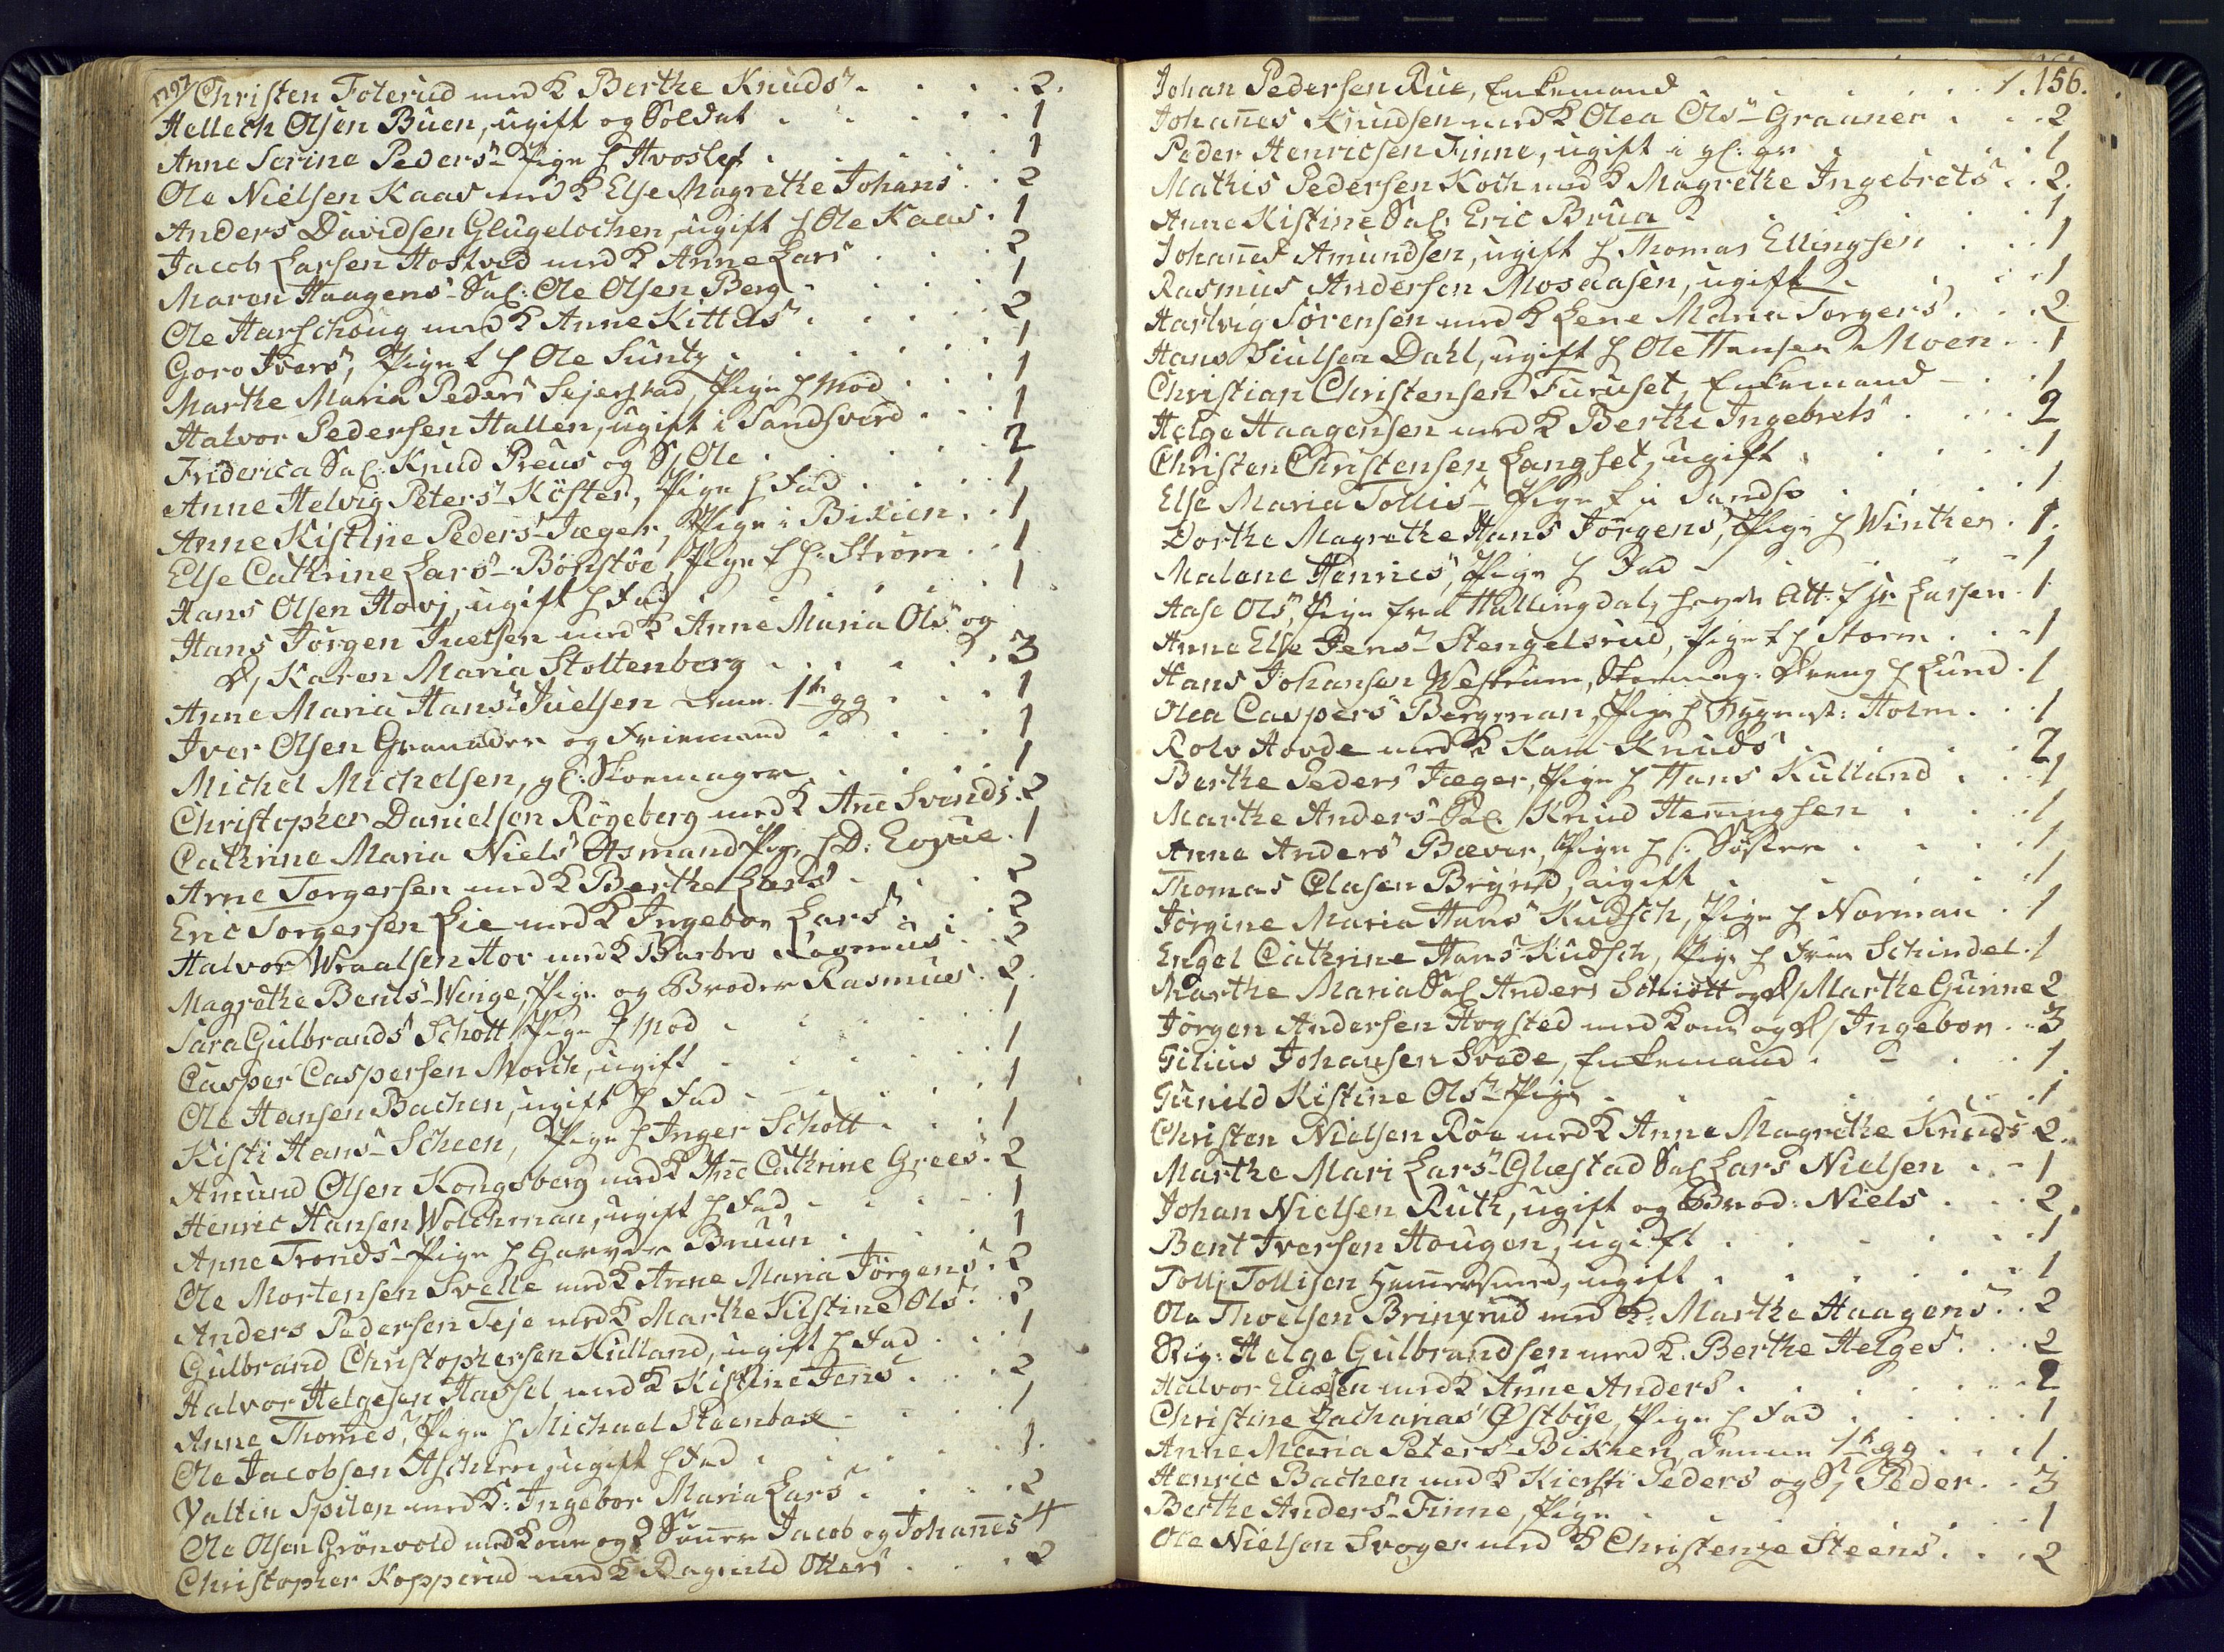 1797
Christen Foterud med K Berthe Knudsr. . . . 2.
Hellech Olsen Buen, ugift og Soldat . . . . 1
Anne Serine Pedersr Pige h Hvoslef . . . . 1
Ole Nielsen Kaas med K Else Magrethe Johansr . . 2
Anders Davidsen Glugelochen, ugift h Ole Kaas . 1
Jacob Larsen Hostved med K Anne Larsr . . . 2
Maren Haagensr Sal: Ole Olsen Berg . . . . 1
Ole Harschoug med K Anne Kittilsr . . . . 2
Goro Iversr, Pige h Ole Suntz . . . . 1
Marthe Maria Pedersr Sejerstad, Pige h Mod . . . 1
Halvor Pedersen Hallen, ugift i Sandsverd . . . 1
Friderica Sal: Knud Preus og S, Ole . . . . 2
Anne Helvig Petersr Köster, Pige h Fad . . . . 1
Anne Kistine Pedersr Jæger, Pige i Bikien . . 1
Else Cathrine Larsr Bönstöe, Pige h H: Ström . . 1
Hans Olsen Hovj, ugift h Fad . . . . 1
Hans Jörgen Juelsen med K Anne Maria Olsr og
D, Karen Maria Stoltenberg . . . . . 3
Anne Maria Hansr Juelsen 1te gg . . . 1
Iver Olsen Granader og Friemand . . . . 1
Michel Michelsen, gl: Skoemager . . . . 1
Christopher Danielsen Rögeberg med K Añe Svendsr. 2
Cathrine Maria Nielsr Asmand Pige h D: Eogue . 1
Arne Torgersen med K Berthe Larsr . . . . 2
Eric Torgersen Lie med K Ingebor Larsr . . . 2
Halvor Wraalsen Hov med K Barbro Rasmusr . . 2
Magrethe Bentsr Winge, Pige og Broder Rasmus . 2.
Sara Gulbrandsr Schott, Pige h Mod . . . . 1
Casper Caspersen Morch, ugift . . . . 1
Ole Hansen Bachen, ugift h Fad . . . . 1
Kisti Hansr Scheen, Pige h Inger Schott . . . 1
Amund Olsen Kongsberg med K Añe Cathrine Greesr. 2
Henric Hansen Wolchman, ugift h Fad . . . 1
Anne Trondsr Pige h Garver Bruun . . . . 1
Ole Mortensen Svelle med K Anne Maria Jörgensr. 2
Anders Pedersen Teje med K Marthe Kistine Olsr. . 2
Gulbrand Christophersen Kulland, ugift h Fad . . . 1
Halvor Helgesen Hassel med K Kistine Jensr . . . 2
Anne Thomesr, Pige h Michael Steenbak . . . 1
Ole Jacobsen Aschim, ugift h Fad . . . . 1.
Valtin Spilen med K: Ingebor Maria Larsr . . . . 2
Ole Olsen Grönvold med Kone og 2 Söner Jacob og Johañes 4
Christopher Kopperud med K Ragnild Ottersr . . . . 2
156.
Johan Pedersen Rue, Enkemand . . . . 1.
Johañes Knudsen med K Olea Olsr Graaner . . . 2
Peder Henricsen Finne, ugift i gl: gr . . . . 1
Mathis Pedersen Koch med K Magrethe Ingebretsr . . 2.
Anne Kistine Sal: Eric Brua . . . . 1
Johañes Amundsen, ugift h Thomas Ellingsen . . . 1
Rasmus Andersen Mosaasen, ugift . . . . 1
Hartvig Sörensen med K Lene Maria Torgersr . . . 2
Hans Siulsen Dahl, ugift h Ole Hansen Moen . . 1
Christian Christensen Furuset, Enkemand . . . 1
Helge Haagensen med K Berthe Ingebretsr . . . . 2
Christen Christensen Langset, ugift . . . . 1
Else Maria Tollisr Pige i Sandsv . . . . 1
Dorthe Magrethe Hans Jörgensr, Pige h Winther . 1.
Malene Henricsr, Pige h Fad . . . . 1
Aase Olsr, Pige fra Hallingdal, Att: h Hr Larsen . 1
Anne Else Jensr Stengelsrud, Pige h Storm . . . 1
Hans Johansen Westrum, Skoemag: Dreng h Lund . 1
Olea Caspersr Bergman, Pige h Bygmst: Holm . . . 1
Rolv Hovde med K Kari Knudsr . . . . 2
Berthe Pedersr Jæger, Pige h Hans Kulland . . . 1
Marthe Andersr Sal: Knud Heñingsen . . . 1
Anne Andersr Bæver, Pige h s: Söster . . . . 1
Thomas Clasen Brynd, ugift . . . . 1
Jörgine Maria Hansr Kudsch, Pige h Norman . 1
Engel Cathrine Hansr Kudsch, Pige h Frue Schindel . 1
Marthe Maria Sal Anders Schiött og D, Marthe Gurine 2
Jörgen Andersen Hogsted med Kone og D, Ingebor . . 3
Gilius Johansen Svede, Enkemand . . . . 1
Gunild Kistine Olsr Pige . . . . 1
Christen Nielsen Röe med K Anne Magrethe Knudsr 2.
Marthe Mari Larsr Glæstad Sal Lars Nielsen . . 1
Johan Nielsen Ruth, ugift og Brod: Niels . . . 2.
Bent Iversen Hougen, ugift . . . . 1
Tolli Tollisen Hamersmed, ugift . . . . 1
Ole Thoelsen Brinxrud med K: Marthe Haagensr . . 2
Stig: Helge Gulbrandsen med K: Berthe Helgesr . . . 2
Halvor Eliesen med K Anne Andersr . . . . 2
Christine Zachariasr Østbye, Pige h Fad . . . . 1
Anne Maria Petersr Bikien, 1te gg . . . 1.
Henric Bachen med K Kiersti Pedersr og S, Peder . . 3
Berthe Andersr Finne, Pige . . . . 1
Ole Nielsen Svoger med K Christenze Steensr . . . 2